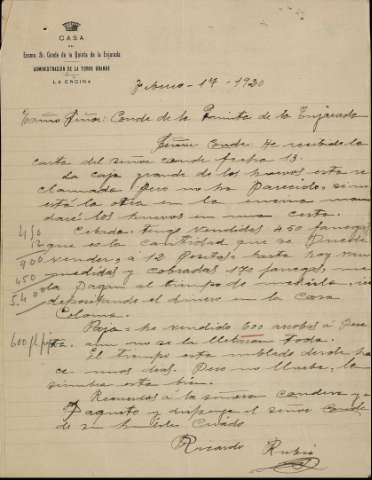 CASA
DEL
Excmo. Sr. Conde de la Quinta de la Enjarada
ADMINISTRACIÓN DE LA TORRE GRANDE
LA ENCINA
Febrero - 17 - 1920
Conde de la Quinta de la Enjarada
Señor Conde. He recibido la
carta del señor conde fecha 13.
La caja grande de los huevos esta re
clamada pero no ha parecido, si no
está la otra en la encina man
daré los huevos en una cesta.
Cebada. tengo vendidas 450 fanegas
que es la cantidad que se puede
vender, a 12 pesetas, hasta hoy van
medidas y cobradas 170 fanegas, me
la pagan al tiempo de medirla,
depositando el dinero en la casa
Coloma.
Paja = he vendido 600 arrobas á pese
ta. aun no se la llevaron toda.
El tiempo esta nublado desde ha
ce unos dias. Pero no llueve, la
siembra esta bien.
Recuerdos á la señora condesa y a
Paquito y disponga el señor conde
de su humilde Criado
Ricardo Rubio
450
12
900
450
5.400
600